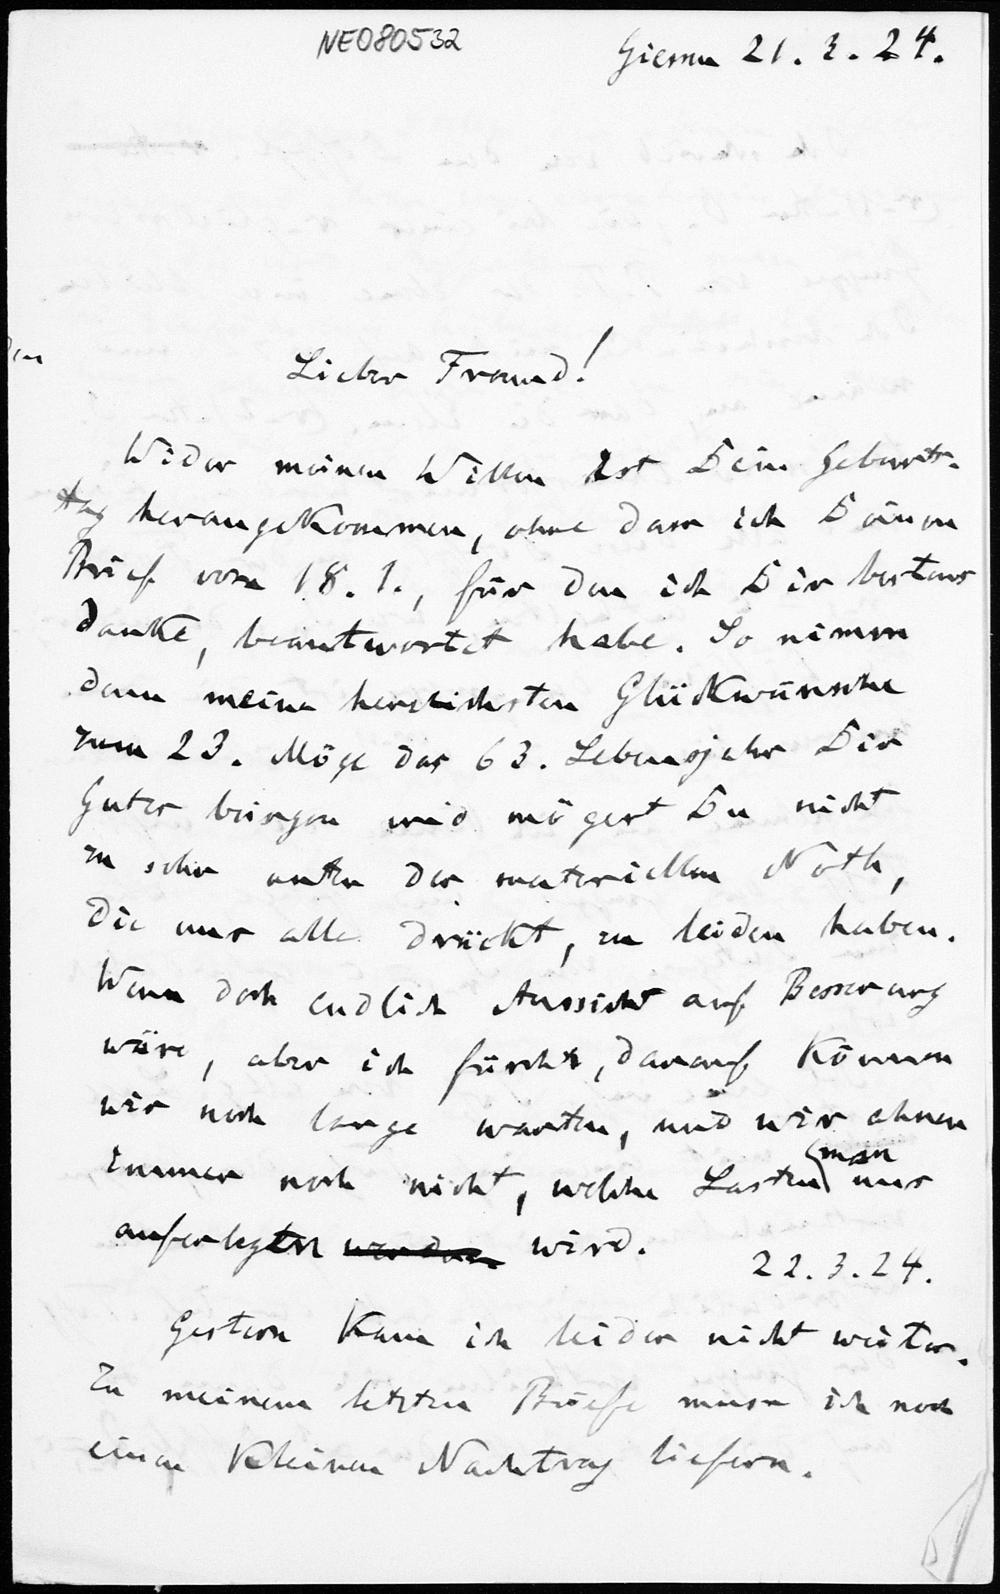 NE080532
Giessen 21. 3. 24.
Lieber Freund!
Wider meinen Willen ist Dein Geburts-
tag herangekommen, ohne dass ich Deinen
Brief vom 18. 1., für den ich Dir bestens
danke, beantwortet habe. So nimm
denn meine herzlichsten Glückwünsche
zum 23. Möge das 63. Lebensjahr Dir
Gutes bringen und mögest Du nicht
zu sehr unter der materiellen Noth,
die uns alle drückt, zu leiden haben.
Wenn doch endlich Aussicht auf Besserung
wäre, aber ich fürchte, darauf können
wir noch lange warten, und wir ahnen
immer noch nicht, welche Lasten man uns
auferlegen werden wird.
22. 3. 24.
Gestern kam ich leider nicht weiter.
Zu meinem letzten Briefe muss ich noch
einen kleinen Nachtrag liefern.